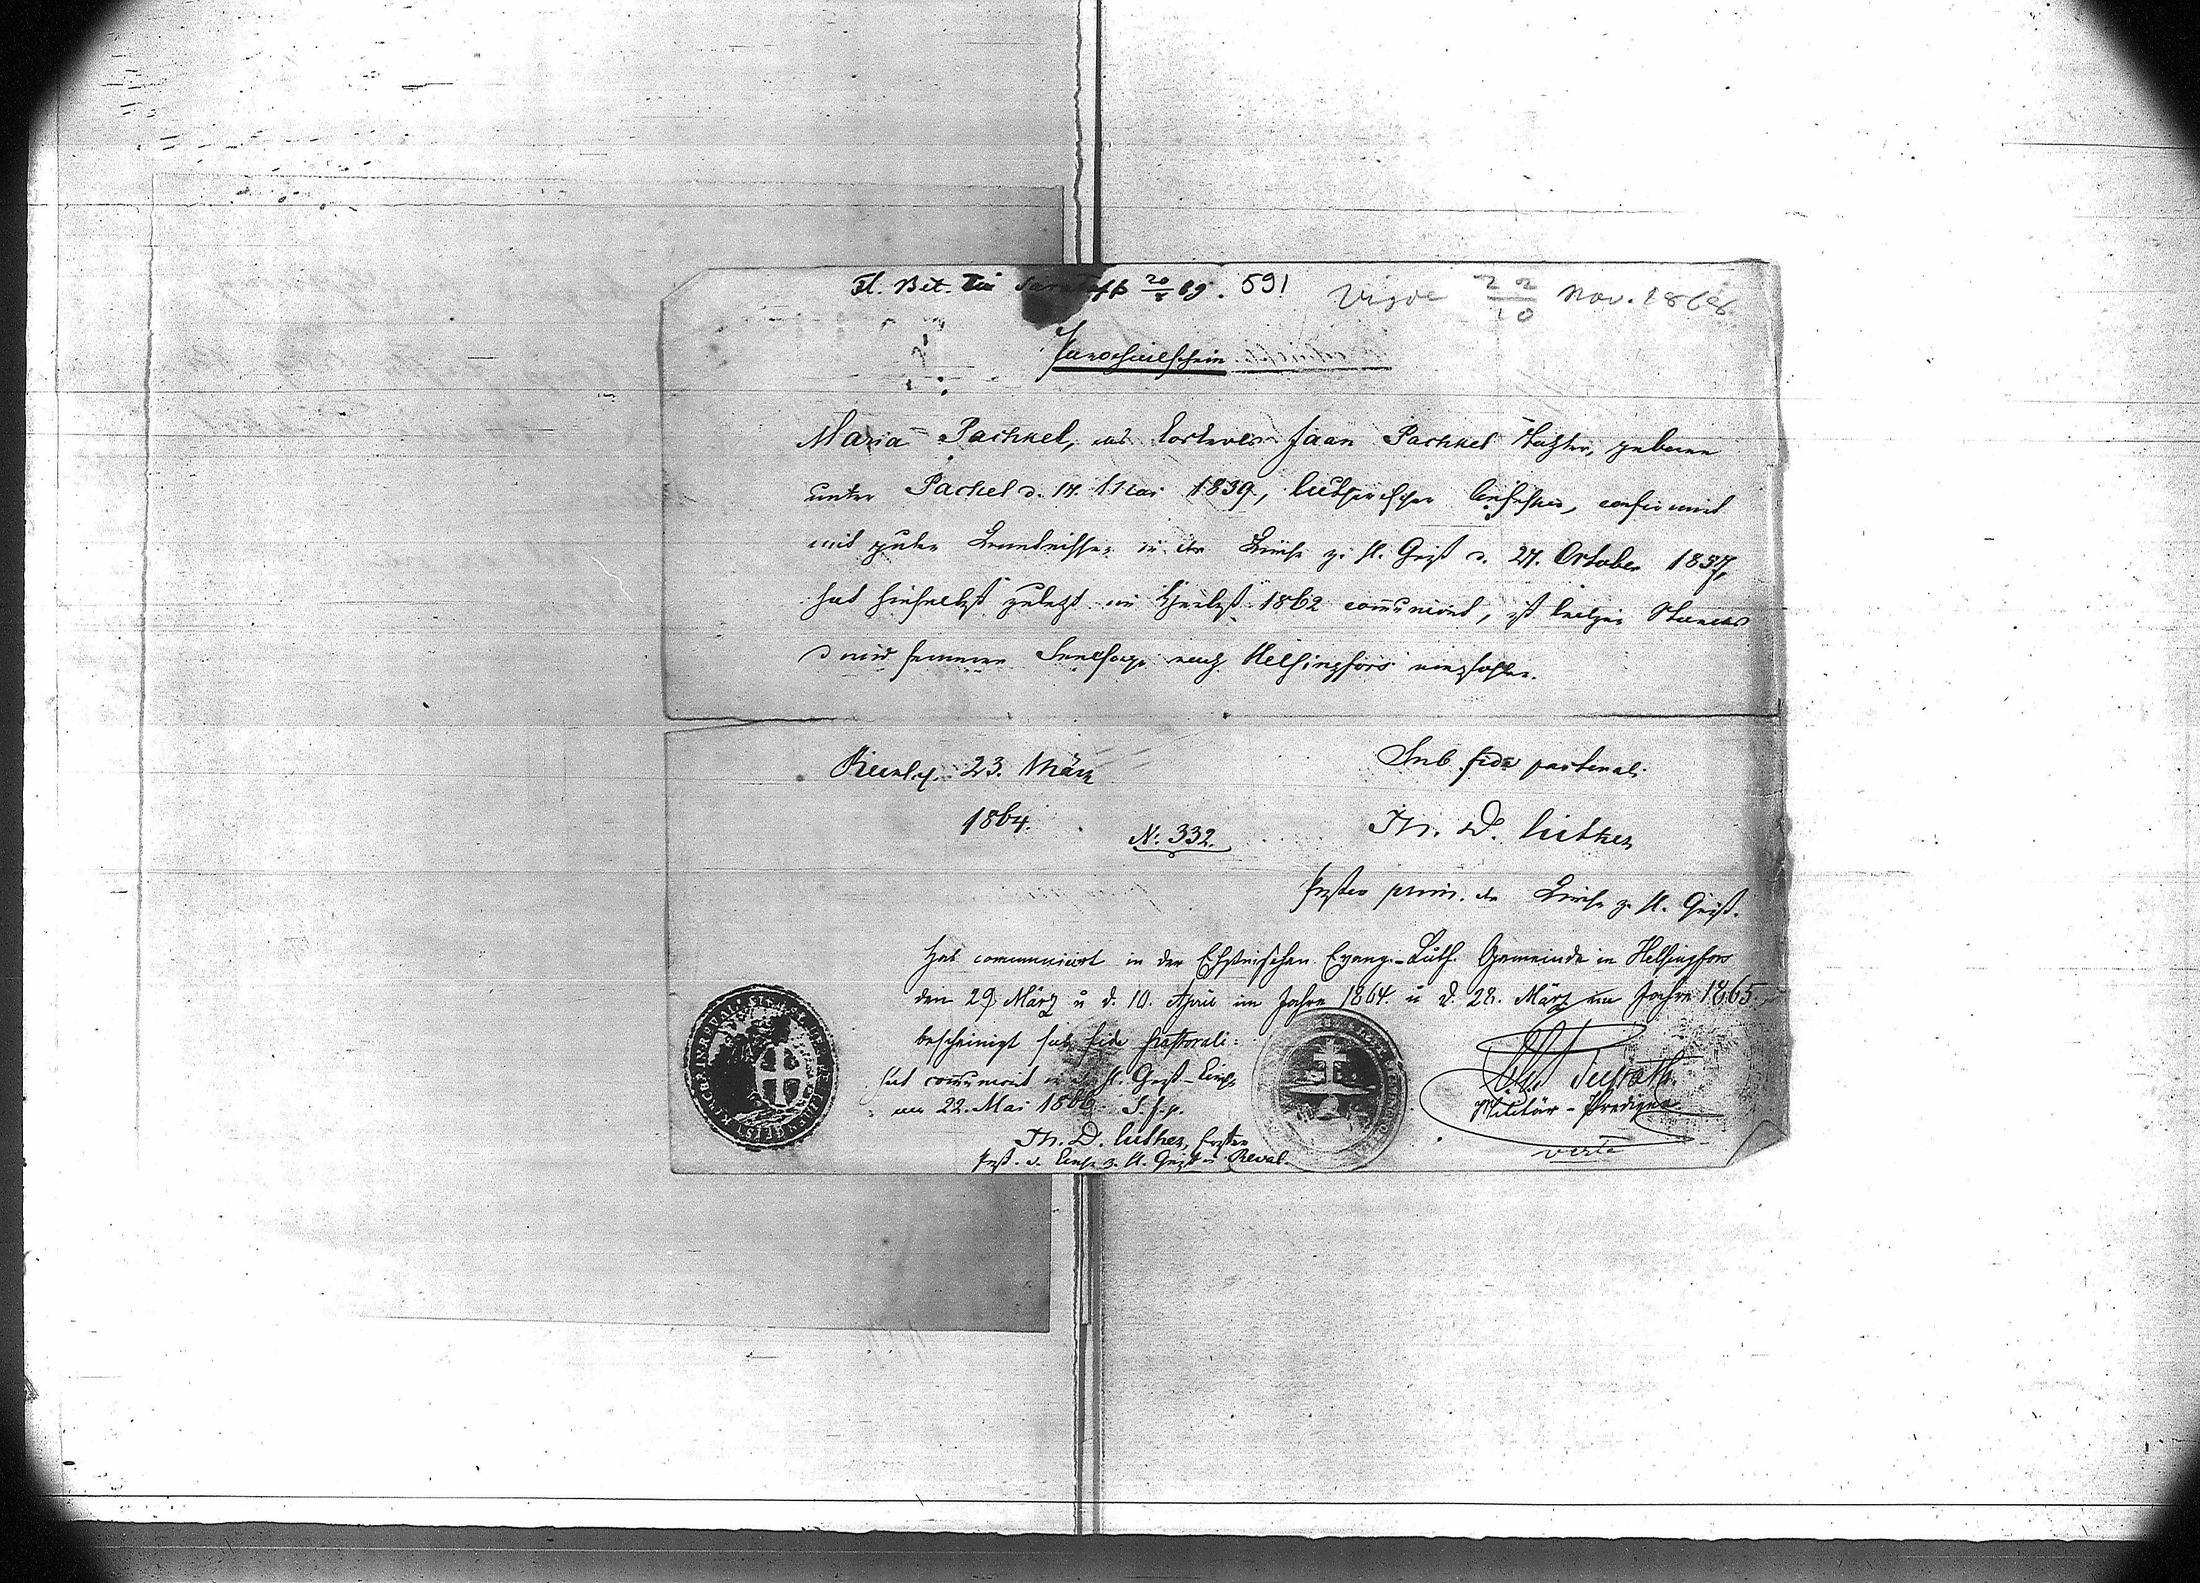 Fl. Bet. 20/5 69. 591
22/10 Nov. 1868
Parochialschein
Maria Pachkel, des Jaan Pachkel Tochter, geboren
unter Pachel d. 14. Mai 1839, lutherischer confirmirt
mit guten Kenntnissen in der Kirche z. H. Geist d. 27. October 1857,
hat hieselbst zuletzt im Herbst 1862 com̄unicirt, ist ledigen Standes
u wird fernerer Seelsorge nach Helsingfors empfohlen.
Reval d. 23. März
1864.
Sub fide pastorali
Th. D. Luther
N: 332.
Pastor prim. der Kirche z. H. Geist.
Hat communicirt in der Ehstnischen Evang.-Luth. Gemeinde in Helsingfors
den 29 März u d. 10. April im Jahre 1864. u d. 28. März im Jahre 1865.
bescheinigt sub fide pastorali:
hat com̄unicirt in d. H. Geist-Kirche
am 22. Mai 1866. S. f. p.
Militär-Prediger
Th. D. Luther, Pastor
Past. d. Kirche z. H. Geist in Reval.
verte